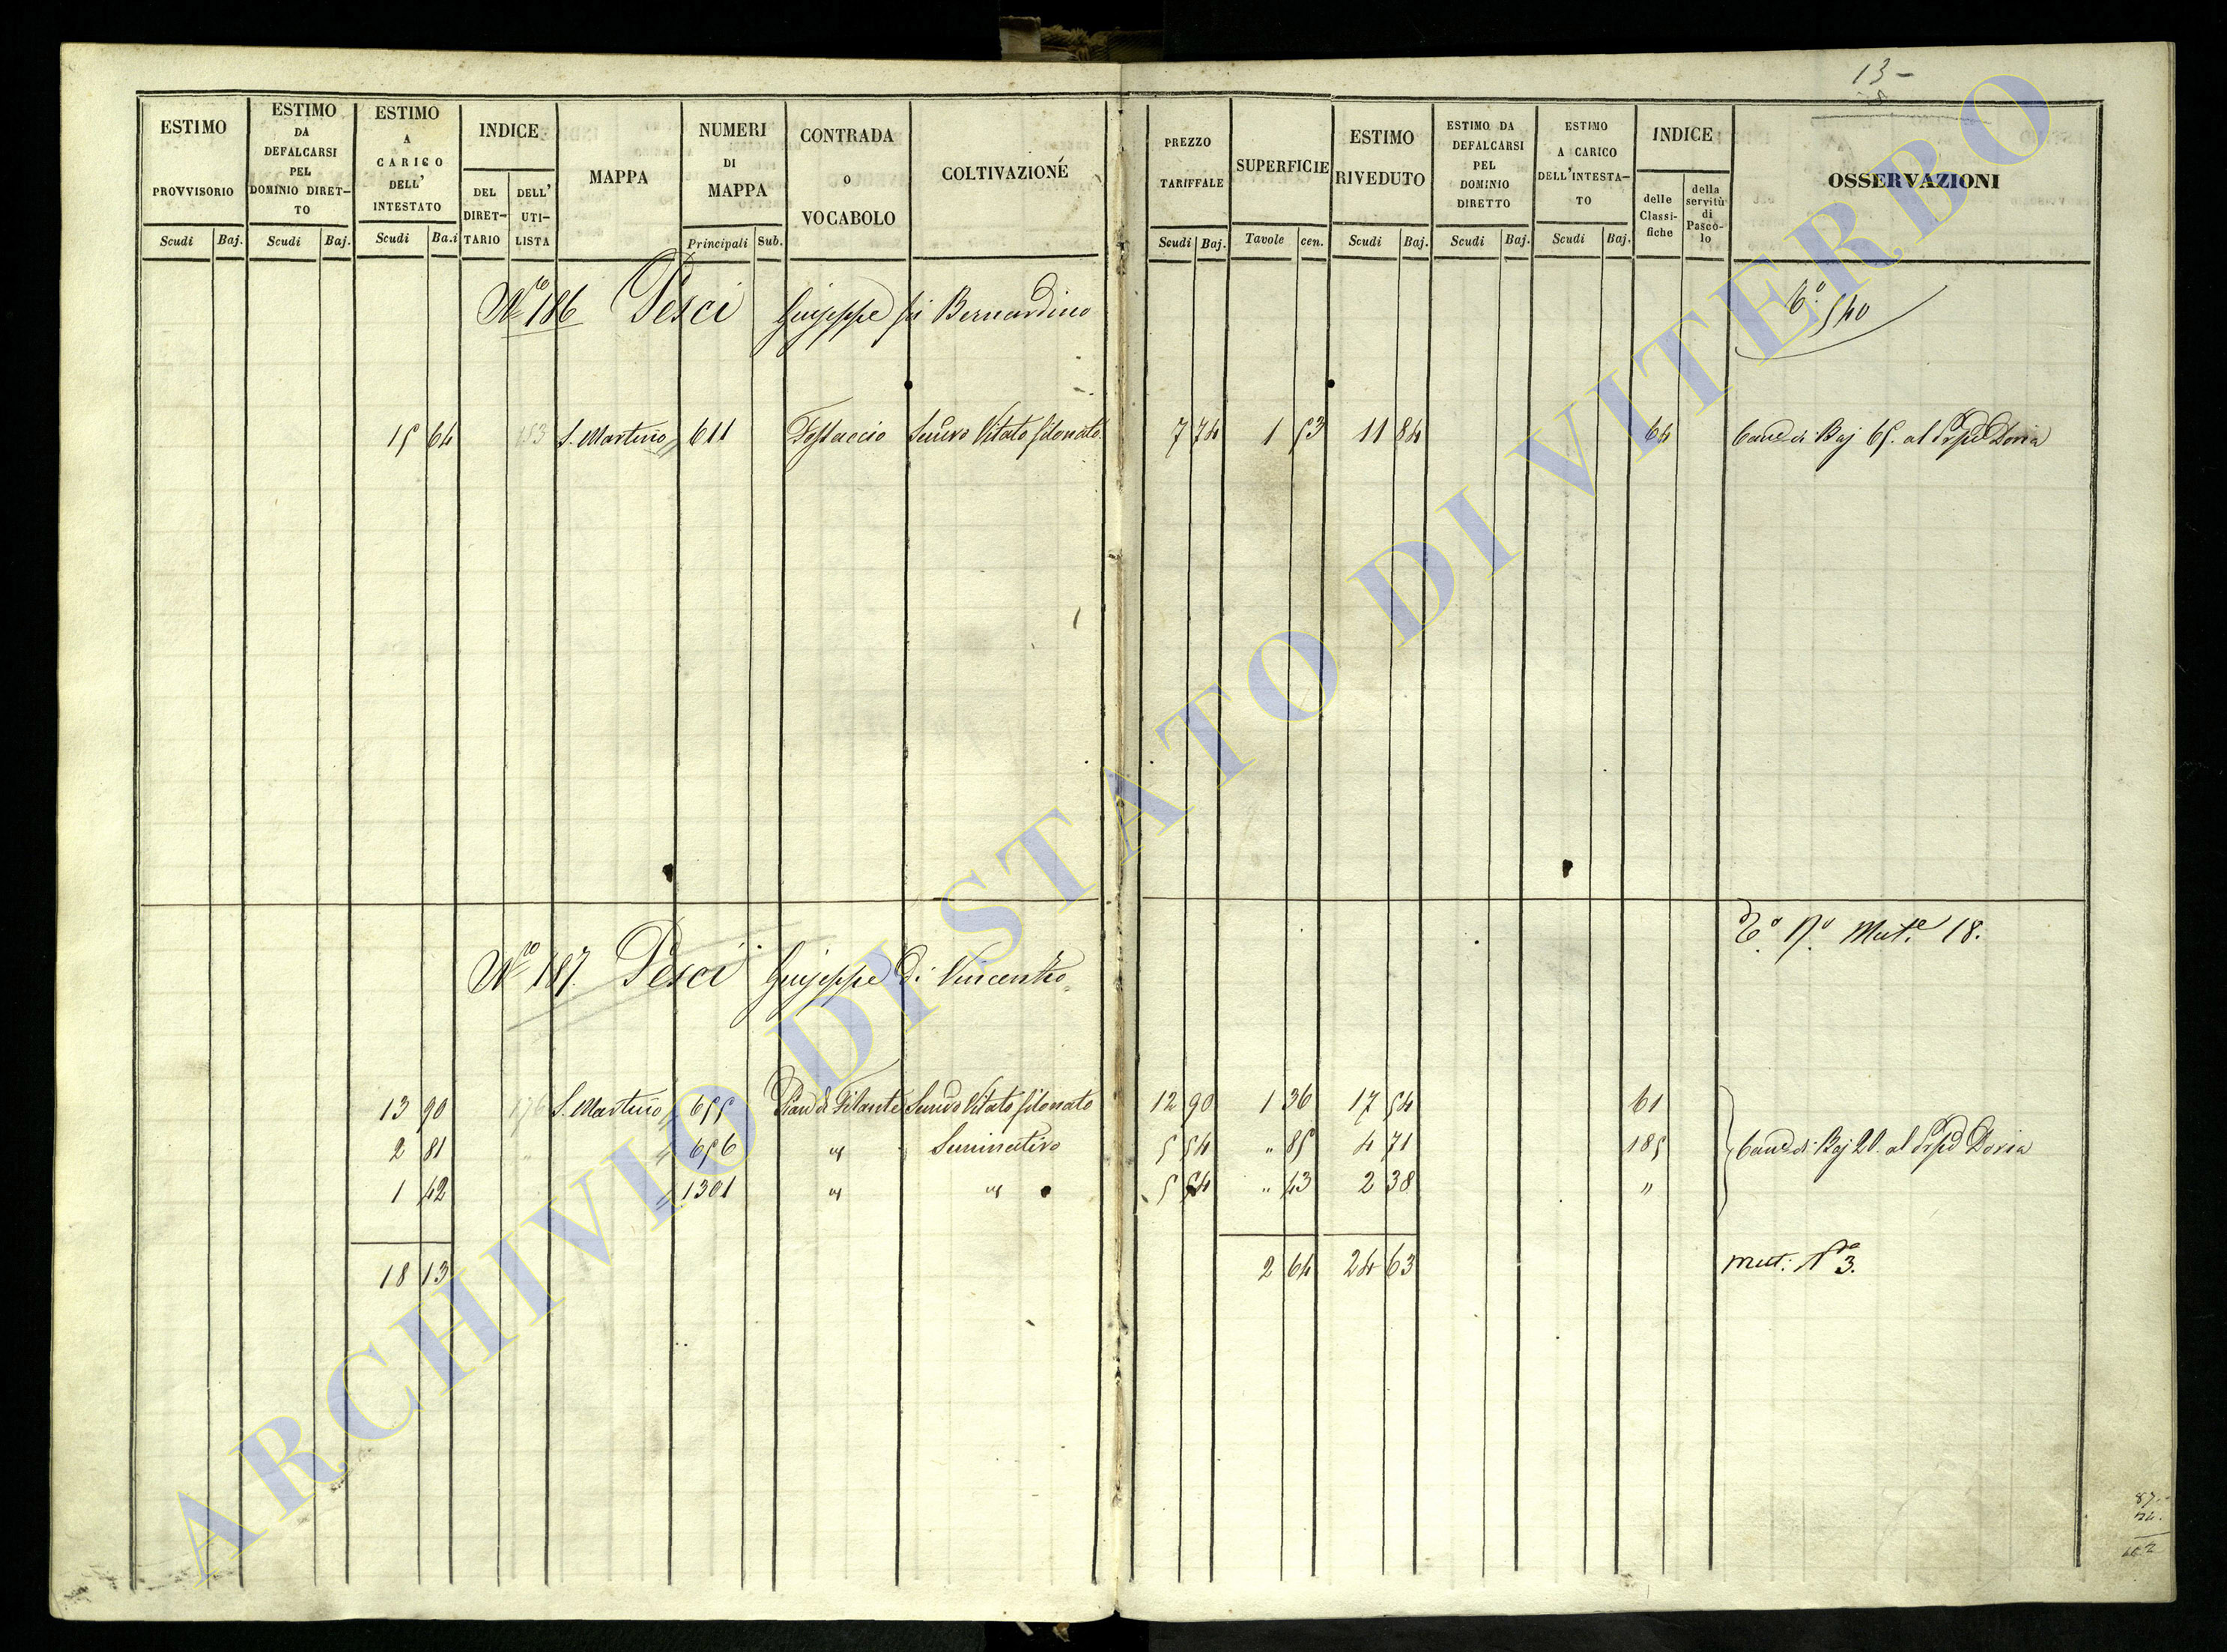 13-
ESTIMO PROVVISORIO
ESTIMO DA DEFALCARSI PEL DOMINIO DIRET-TO
ESTIMO A CARICO DELL' INTESTATO
INDICE
DEL DIRET-TARIO
DELL' UTI-LISTA
MAPPA
NUMERI DI MAPPA
CONTRADA O VOCABOLO
COLTIVAZIONE
PREZZO TARIFFALE
SUPERFICIE
ESTIMO RIVEDUTO
ESTIMO DA DEFALCARSI PEL DOMINIO DIRETTO
ESTIMO A CARICO DELL'INTESTA-TO
INDICE
delle Classi-fiche
della servitù di Pasco-lo
OSSERVAZIONI
Scudi Baj. Scudi Baj. Scudi Ba.i Principali Sub. Scudi Baj. Tavole cen. Scudi Baj. Scudi Baj. Scudi Baj.
Nº 186 Pesci Giuseppe fu Bernardino
540
15 64 153 S. Martino 611 Fossaccio Semvo Vitato filonato 7 74 1 53 11 84 64 Cane di Baj 65. al Prpe Doria
Nº 187. Pesci Giuseppe di Vincenzo
Mute 18.
13 90 176 S. Martino 655 Pian di Filante Semvo Vitato filonato 12 90 1 36 17 54 61
2 81 " 656 " Seminativo 5 54 " 85 4 71 185 Cane di Baj 20. al Prpe Doria
1 42 1301 " " 5 54 " 43 2 38 "
18 13 2 64 24 63 Mut: Nº 3.
ARCHIVIO DI STATO DI VITERBO